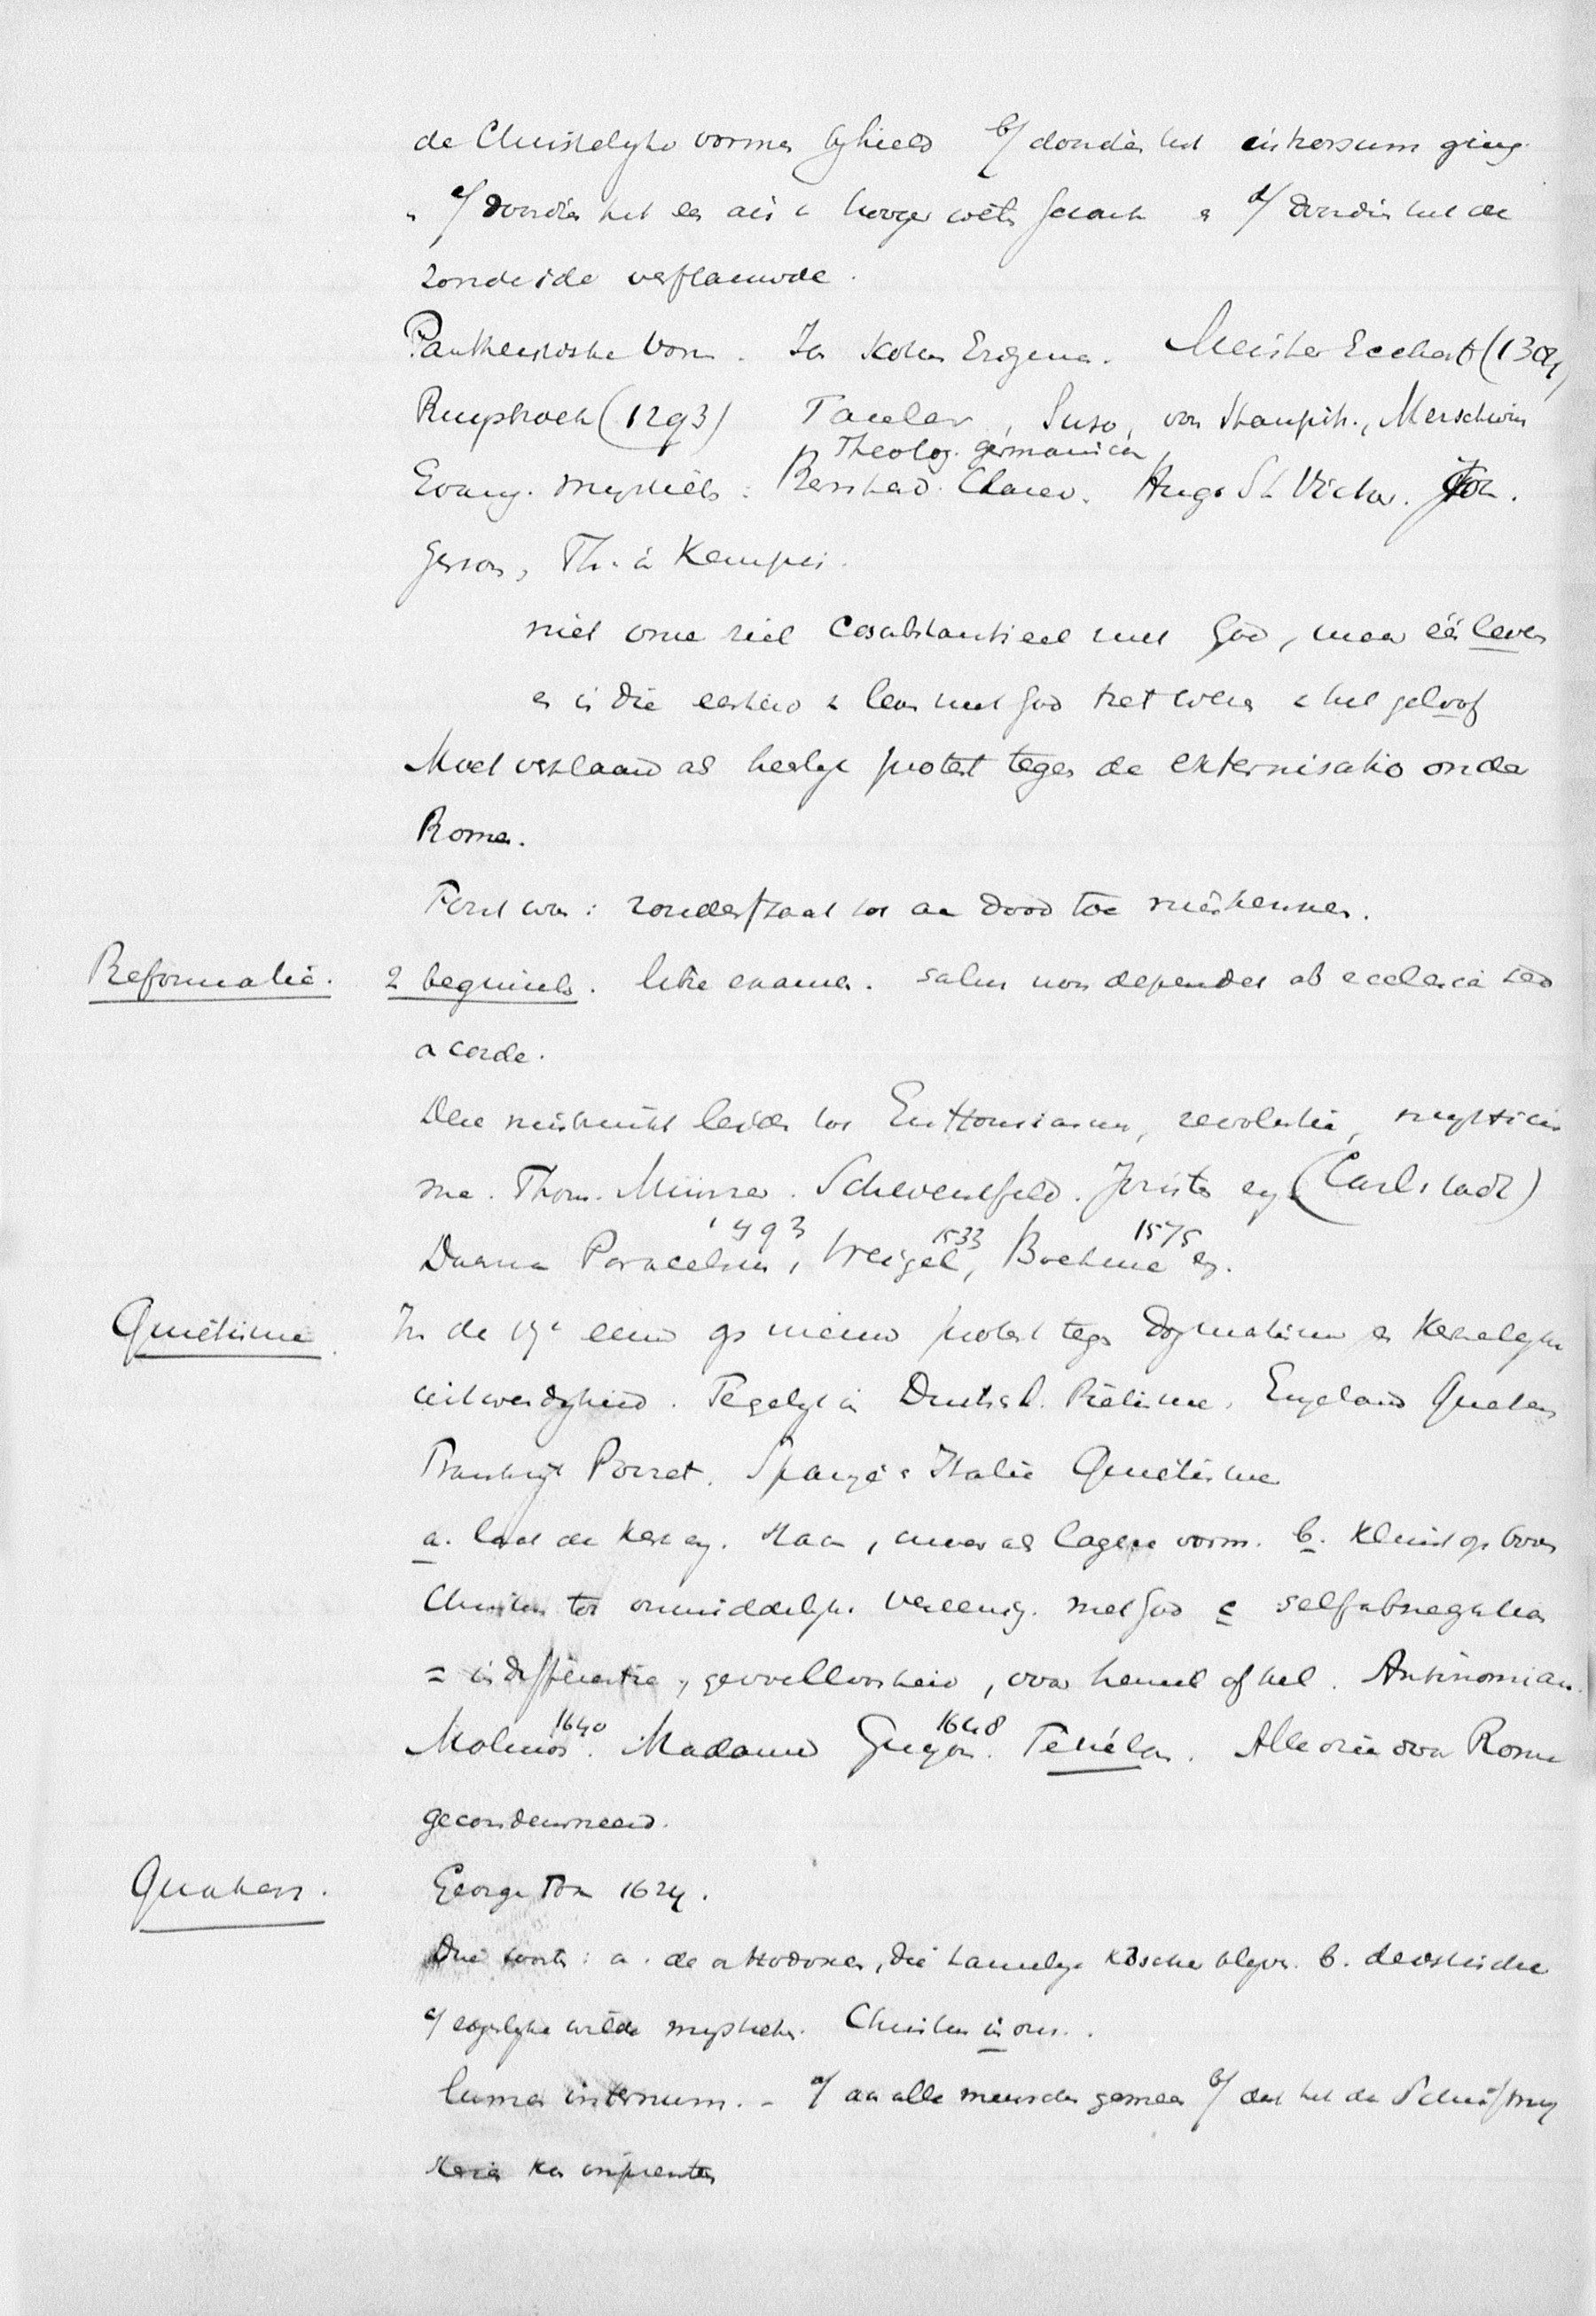 de Christelyke vormen byhield b/ doordien het introrsum ging
c/ doordien het er als i hooger weten facach d/ doordien het de
zonde idee verflauwde.
Pantheistische vorm. Joh Scotus Erigena. Meister Ecchart (1309)
Ruysbroek (1293) Tauler, Suso, von Staupitz., Merschwin
Theolog. germanica
Evang. mystiek: Bernhard. Clairv. Hugo St Victor. Joh.
Gerson, Th. à Kempis.
niet onze ziel consubstantieel met God, maar één leven
en is die eenheid v leven met God het wezen v het geloof
Moet verklaard als heerlyk protest tegen de externisatio onder
Rome.
Fout was: zonderstaat tot den dood toe miskennen.
Reformatie. 2 beginsels. libre examen. salus non dependet ab ecclesia sed
a corde.
Deze misbruikt leiden tot Enthousiasme, revolutie, mysticis
me. Thom. Münzer. Schwenkfeld. Joristen ez. (Carlstadt)
1493 1533 1575
Daarna Paracelsus, Weigel, Boehme ez.
Quiëtisme In de 17e eeuw op nieuw protest tegen dogmatisme en Kerkelyke
uitwendigheid. Tegelyk in Duitschl. Piëtisme, Engeland Quakers
Frankryk Poiret. Spanje & Italië Quietisme
a. laat de kerk ez. staan, maar als lagere vorm. b. Klimt op boven
Christus tot onmiddelyke vereenig. met God c selfabnegation
= indifferentie, gevoelloosheid, voor hemel of hel. Antinomian.
1640 1648
Molinos. Madame Guyon. Fénélon. Alle drie door Rome
gecondemneerd.
Quakers. George Fox 1624.
Drie soorten: a. de orthodoxen, die tamelyk Kersche blyven. b. deistische
c/ eigenlyke wilde mystieken. Christus in ons.
lumen internum. - a/ aan alle menschen gemeen b/ dat het de Schrift mys
teria kan inprenten